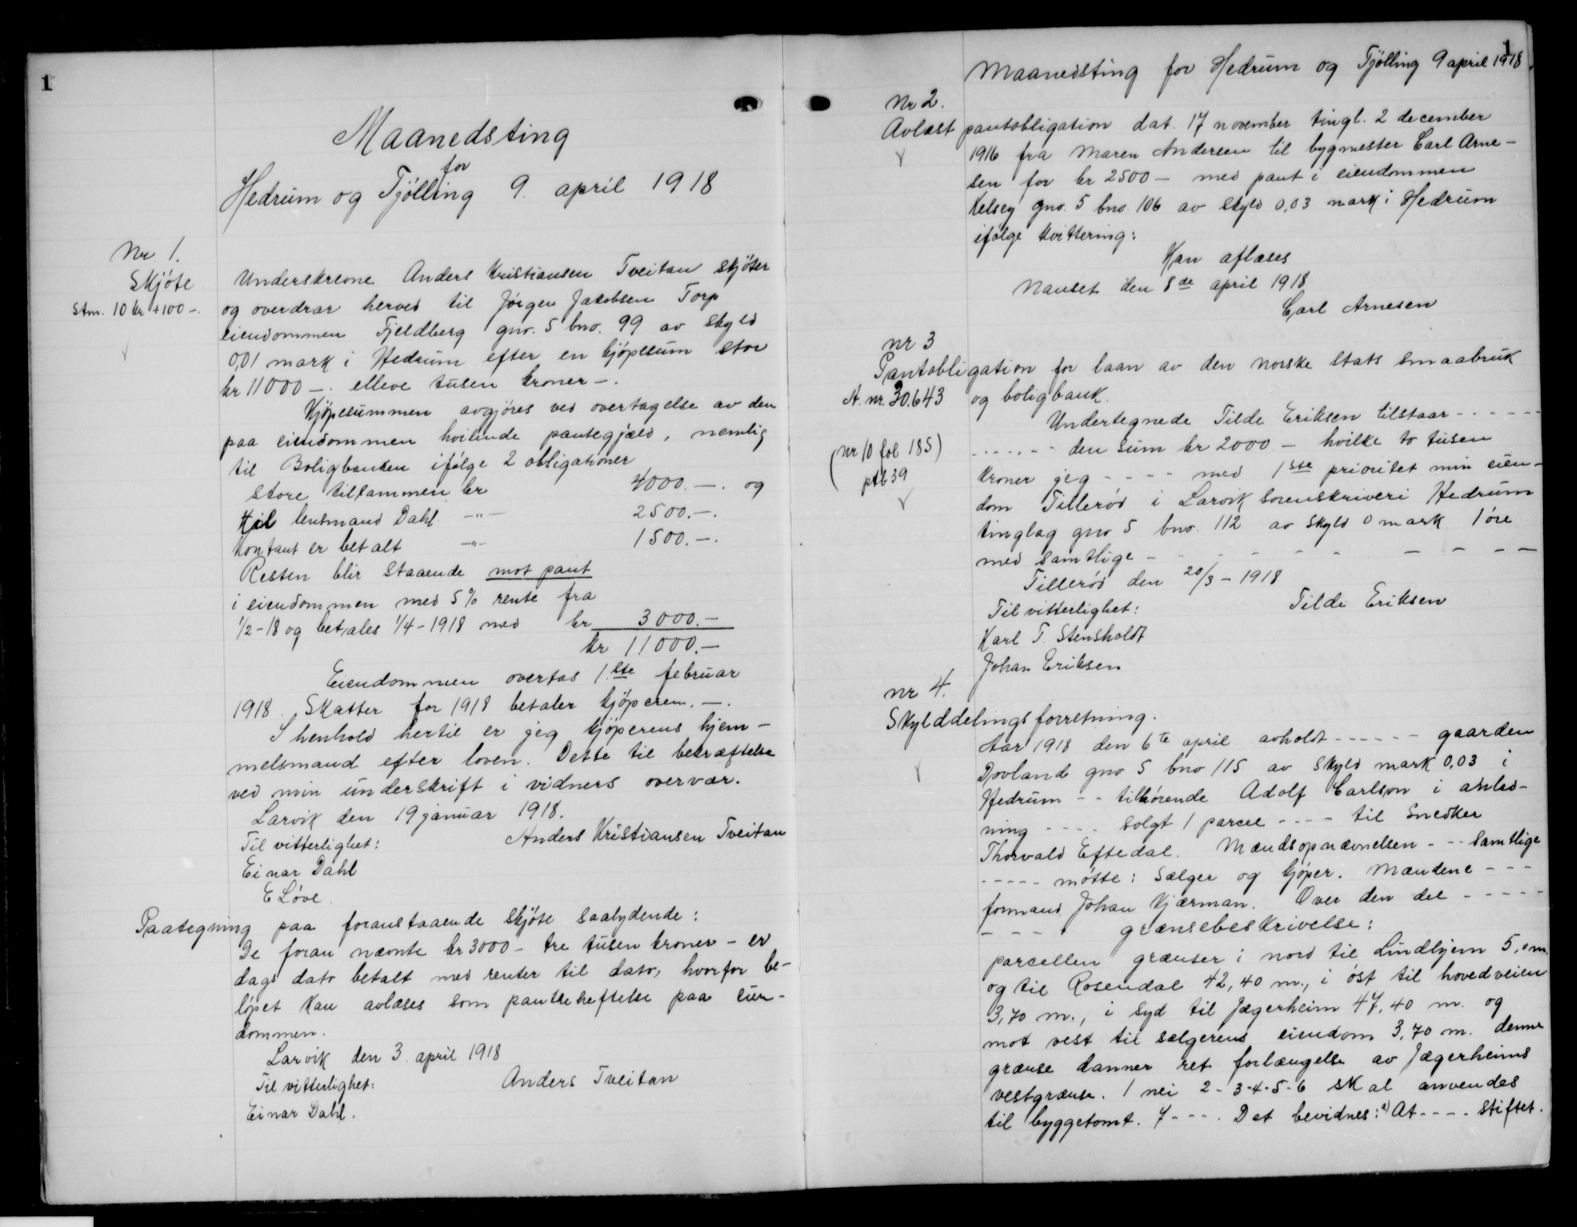 1
Maanedsting
for
Hedrum og Tjölling 9. april 1918
Nr 1.
Skjöte
Stm. 10 kr + 100 -.
Underskrevne Anders Kristiansen Tveitan skjöter
og overdrar herved til Jörgen Jakobsen Torp
eiendommen Fjeldberg gno. 5 bno. 99 av skyld
0,01 mark i Hedrum efter en kjöpesum stor
kr 11000 -. elleve tusen kroner -.
Kjöpesummen avgjöres ved overtagelse av den
paa eiendommen hvilende pantegjæld, nemlig
til Boligbanken ifölge 2 obligationer
store tilsammen kr 4000.-. og
til lensmand Dahl -"- 2500.-.
kontant er betalt -"- 1500.-.
Resten blir staaende mot pant
i eiendommen med 5% rente fra
1/2-18 og betales 1/4-1918 med kr 3000.-
kr 11000.-
Eiendommen overtas 1ste februar
1918. Skatter for 1918 betaler kjöperen.-.
I henhold hertil er jeg kjöperens hjem-
melsmand efter loven. Dette til bekræftelse
ved min underskrift i vidners overvær.
Larvik den 19 januar 1918.
Til vitterlighet: Anders Kristiansen Tveitan
Einar Dahl
E Löve.
Paategning paa foranstaaende skjöte saalydende:
De foran nævnte kr 3000- tre tusen kroner - er
dags dato betalt med renter til dato, hvorfor be-
löpet kan avlæses som panteheftelse paa eien-
dommen.
Larvik den 3. april 1918
Til vitterlighet: Anders Tveitan
Einar Dahl.
1
Maanedsting for Hedrum og Tjölling 9 april 1918
Nr 2.
Avlæst pantobligation dat. 17 november tingl. 2 december
1916 fra Maren Andersen til bygmester Carl Arne-
sen for kr 2500 - med pant i eiendommen
Kelsey gno. 5 bno. 106 av skyld 0,03 mark i Hedrum
ifölge kvittering:
Kan aflæses
Nanset den 8de april 1918
Carl Arnesen
nr 3
Pantobligation for laan av den norske stats smaabruk
A. nr. 30.643 og boligbank.
Undertegnede Tilde Eriksen tilstaar - - - - -
(nr 10 fol 185) - - - - - - den sum kr 2000 - hvilke to tusen
ptb 39 kroner jeg - - - med 1ste prioritet min eien-
dom Tillerød i Larvik sorenskriveri Hedrum
tinglag gno 5 bno. 112 av skyld 0 mark 1 öre
med samtlige - - - - - - - - - -
Tillerød den 20/3 - 1918
Til vitterlighet: Tilde Eriksen
Karl T. Stensholdt
Johan Eriksen
nr 4.
Skylddelingsforretning.
Aar 1918 den 6te april avholdt - - - - - - gaarden
Dovland gno 5 bno 115 av skyld mark 0,03 i
Hedrum - - tilhörende Adolf Carlson i anled-
ning - - - - solgt 1 parcel - - - - til Snedker
Thorvald Eftedal. Mændsopnævnelsen - - - samtlige
- - - - - mötte: Sælger og kjöper. Mændene - - -
formand Johan Kjærman. Over den del - - - - -
- - - - grænsebeskrivelse:
parcellen grænser i nord til Lindhjem 5, m
og til Rosendal 42,40 m., i öst til hovedveien
3,70 m., i syd til Jægerheim 47,40 m. og
mot vest til sælgerens eiendom 3,70 m. denne
grænse danner ret forlængelse av Jægerheims
vestgrænse. 1 nei 2-3-4-5-6 skal anvendes
til byggetomt. 7 - - - . Det bevidnes: At - - - - stiftet.